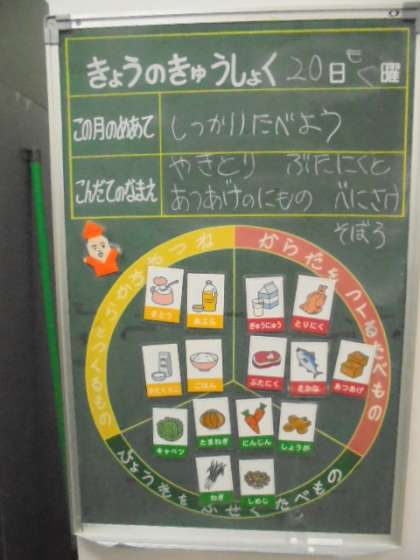 きょうのきゅうしょく 20日 もく曜
この月のめあて しっかりたべよう
こんだてのなまえ やきとり ぶたにくと
あつあげのにもの べにざけ
そぼろ
からだをつくるたべもの
さとう あぶら ぎゅうにゅう とりにく
ごはん ぶたにく さかな あつあげ
キャベツ たまねぎ にんじん しょうが
ねぎ しめじ
びょうきをふせぐたべもの